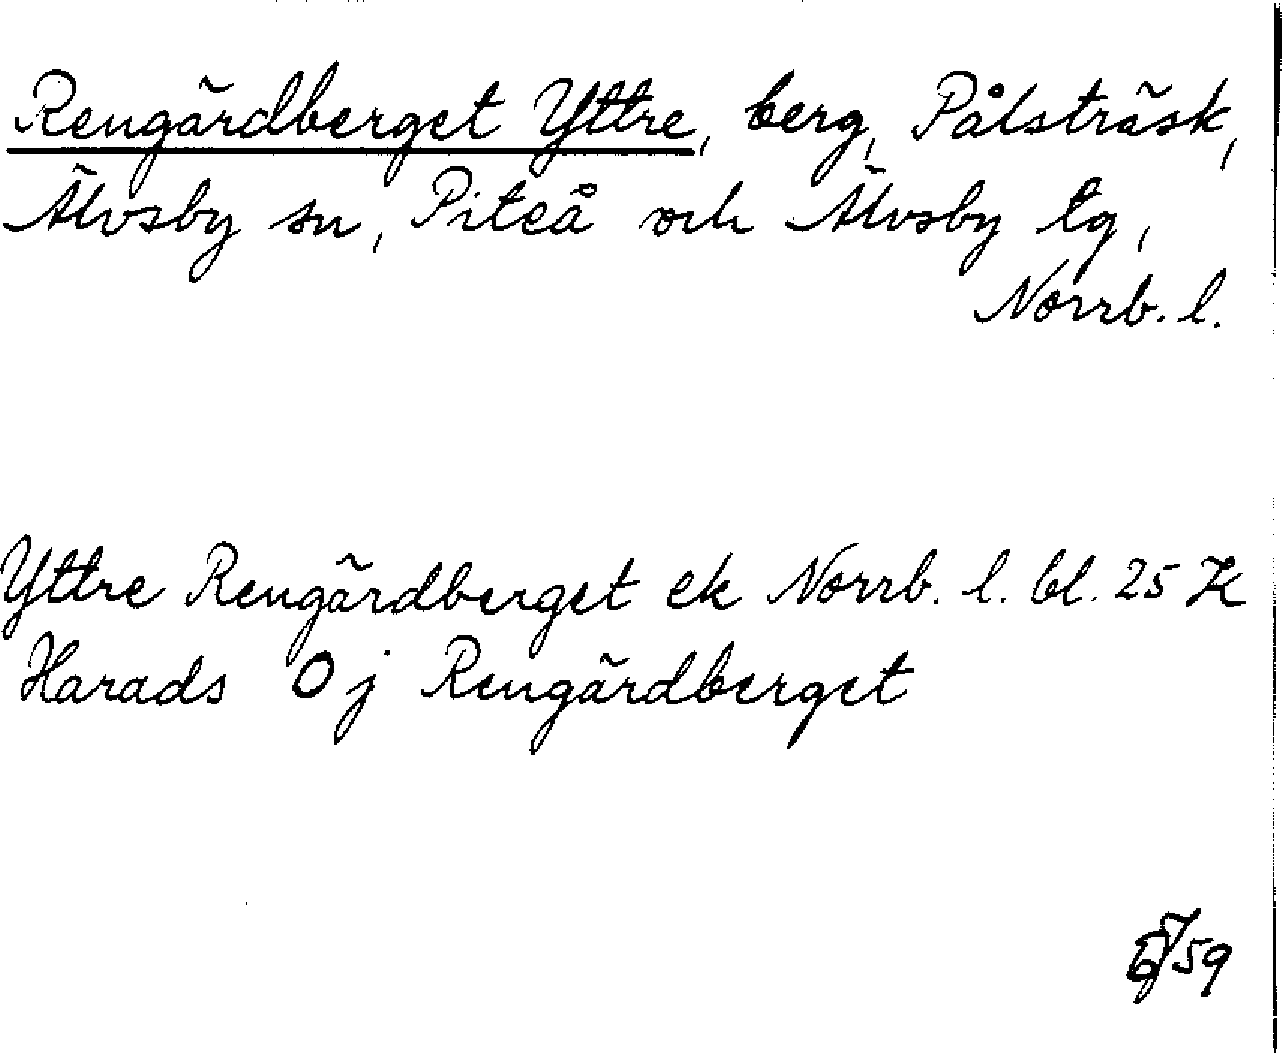 Rengärdberget Yttre, berg, Pålsträsk,
Älvsby sn, Piteå och Älvsby tg,
Norrb. l.
Yttre Rengärdberget ek Norrb. l. bl. 25 K
Harads Oj Rengärdberget
59